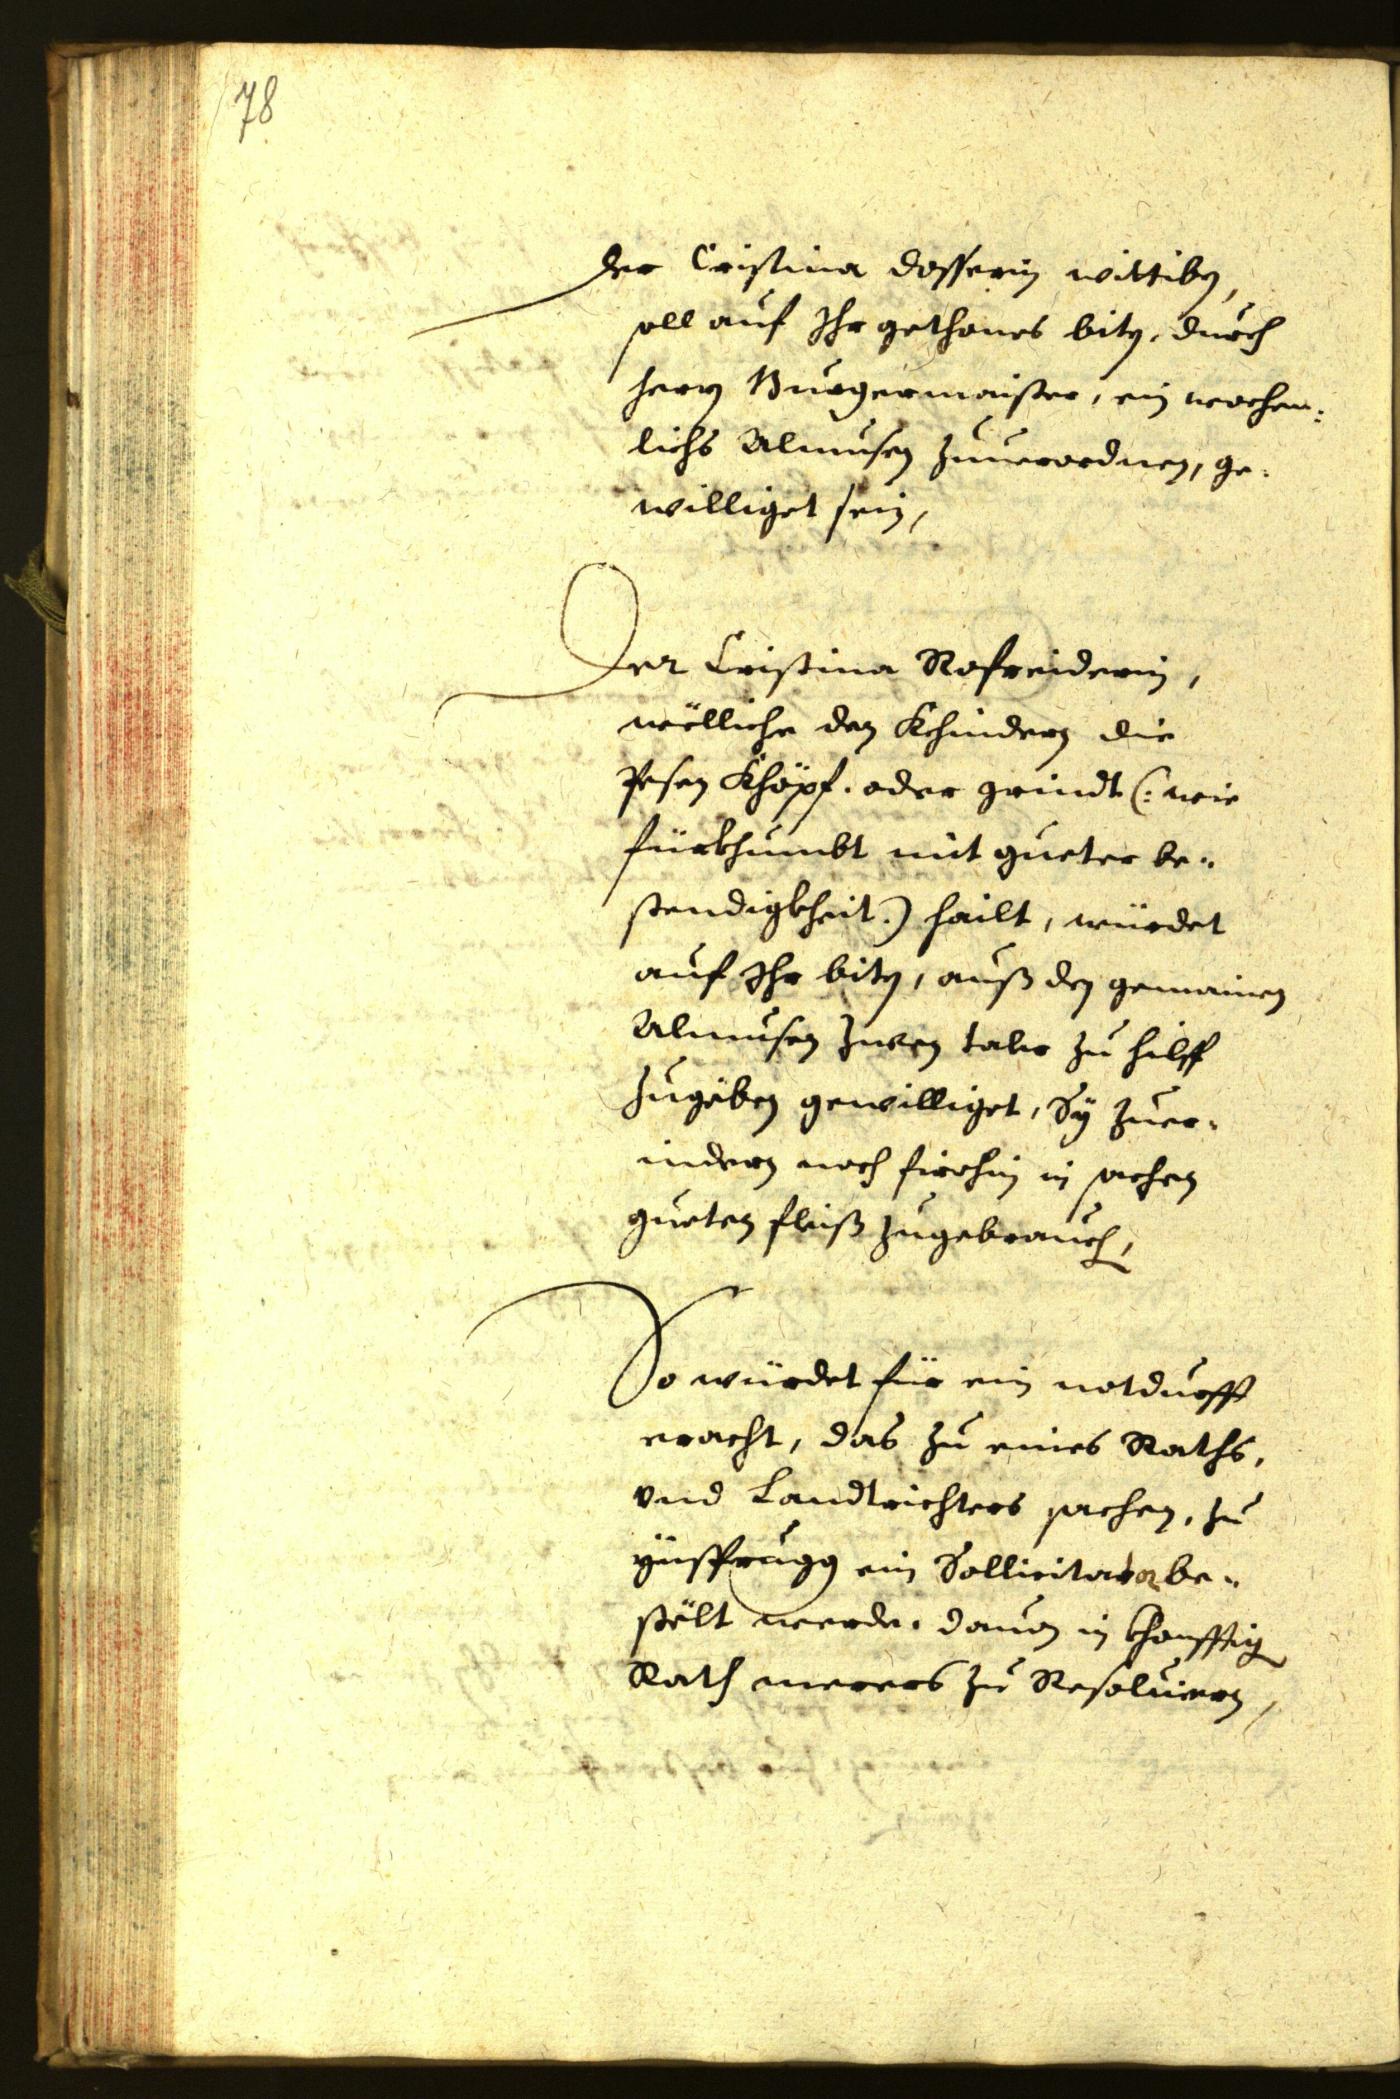 78
Der Cristina Dosserin wittiben,
soll auf Ihr gethones biten, durch
hern Burgermaister, ein wochen¬
lichs Almusen zuuerordnen, ge¬
williget sein,
Der Cristina Rofreiderin,
wölliche den Khindern die
Pesen Khöpf. oder grindt (: wie
fürkhumbt mit gueter be¬
stendigkheit:) hailt, würdet
auf Ihr biten, auß den gemainen
Almusen zwen taler zu hilff
zugeben gewilliget, Sÿ zuer¬
indern noch firohin in sachen
gueten fleiß zugebrauch,
So würdet für ein notdurfft
eracht, das zu eines Raths,
vnd Landtrichters sachen, zu
Ynsprugg ein Sollicitator be¬
stölt werde. dauon in khonfftig
Rath merers zu Resoluiern,